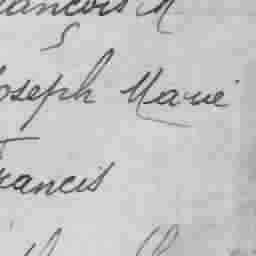 ancois M
S
oseph Marie
rancis